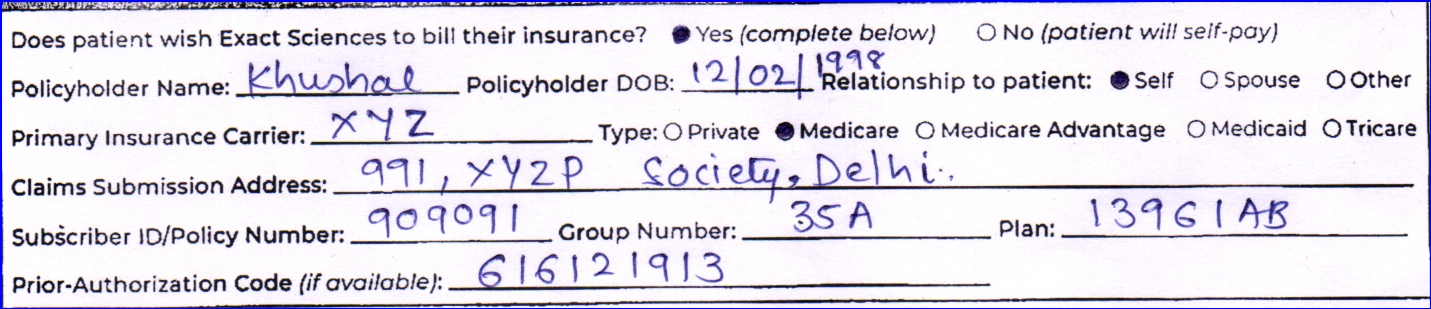 Does patient wish Exact Sciences to bill their insurance? Yes (complete below) No (patient will self-pay)
Policyholder Name: Khushal Policyholder DOB: 12/02/1998 Relationship to patient: Self Spouse Other
Primary Insurance Carrier: XYZ Type: Private Medicare Medicare Advantage Medicaid Tricare
Claims Submission Address: 991, XYZP Society, Delhi.
Subscriber ID/Policy Number: 909091 Group Number: 35A Plan: 13961AB
Prior-Authorization Code (if available): 616121913